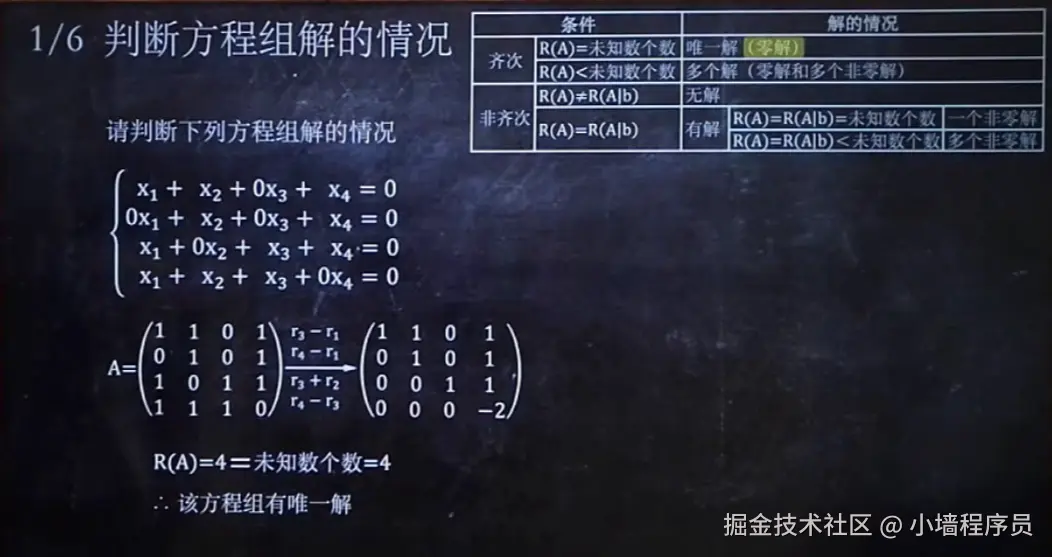 1/6 判断方程组解的情况
条件 解的情况
齐次 R(A)=未知数个数 唯一解(零解)
R(A)<未知数个数 多个解(零解和多个非零解)
非齐次 R(A)≠R(A|b) 无解
R(A)=R(A|b) 有解 R(A)=R(A|b)=未知数个数 一个非零解
R(A)=R(A|b)<未知数个数 多个非零解
请判断下列方程组解的情况
x₁ + x₂ + 0x₃ + x₄ = 0
0x₁ + x₂ + 0x₃ + x₄ = 0
x₁ + 0x₂ + x₃ + x₄ = 0
x₁ + x₂ + x₃ + 0x₄ = 0
1 1 0 1 r₃ − r₁ 1 1 0 1
0 1 0 1 r₄ − r₁ 0 1 0 1
A= 1 0 1 1 r₃ + r₂ 0 0 1 1
1 1 1 0 r₄ − r₃ 0 0 0 −2
R(A)=4=未知数个数=4
∴ 该方程组有唯一解
掘金技术社区 @ 小墙程序员